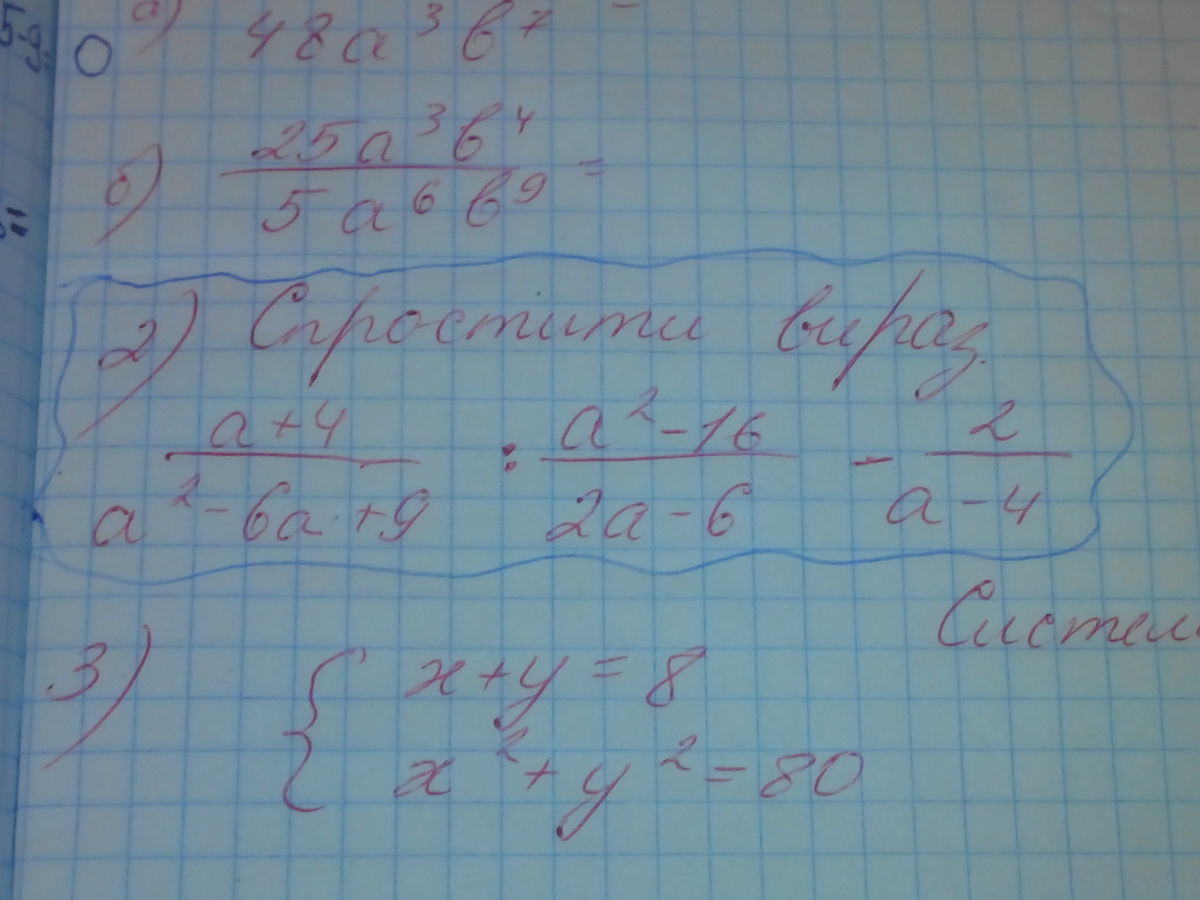 а) 48a³b⁷
б) 25a³b⁴ / 5a⁶b⁹ =
2) Спростити вираз.
a+4 / a²-6a+9 : a²-16 / 2a-6 - 2 / a-4
3) { x+y=8
x²+y²=80